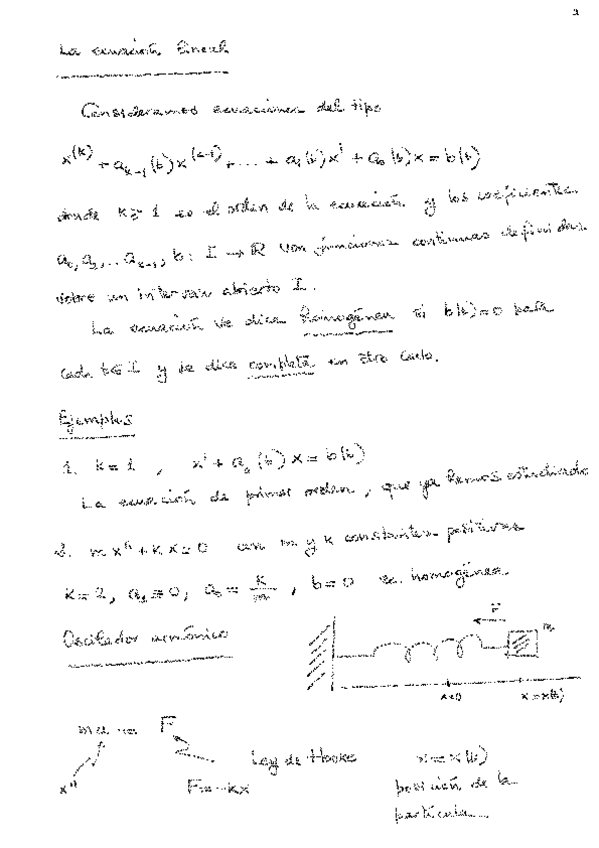 1
La ecuación lineal
Consideramos ecuaciones del tipo
x^(k) + a_{k-1}(t)x^(k-1) + ... + a_1(t)x' + a_0(t)x = b(t)
donde k ≥ 1 es el orden de la ecuación y los coeficientes
a_0, a_1, ... a_{k-1}, b: I → ℝ son funciones continuas definidas
sobre un intervalo abierto I.
La ecuación se dice homogénea si b(t) = 0 para
cada t ∈ I y se dice completa en otro caso.
Ejemplos
1. k = 1 , x' + a_0(t) x = b(t)
La ecuación de primer orden, que ya hemos estudiado
2. m x'' + k x = 0 con m y k constantes positivas
k = 2, a_1 = 0, a_0 = k/m , b = 0 homogénea
Oscilador armónico
F m
x=0 x = x(t)
ma = F
Ley de Hooke x = x(t)
x'' F = -kx posición de la
partícula